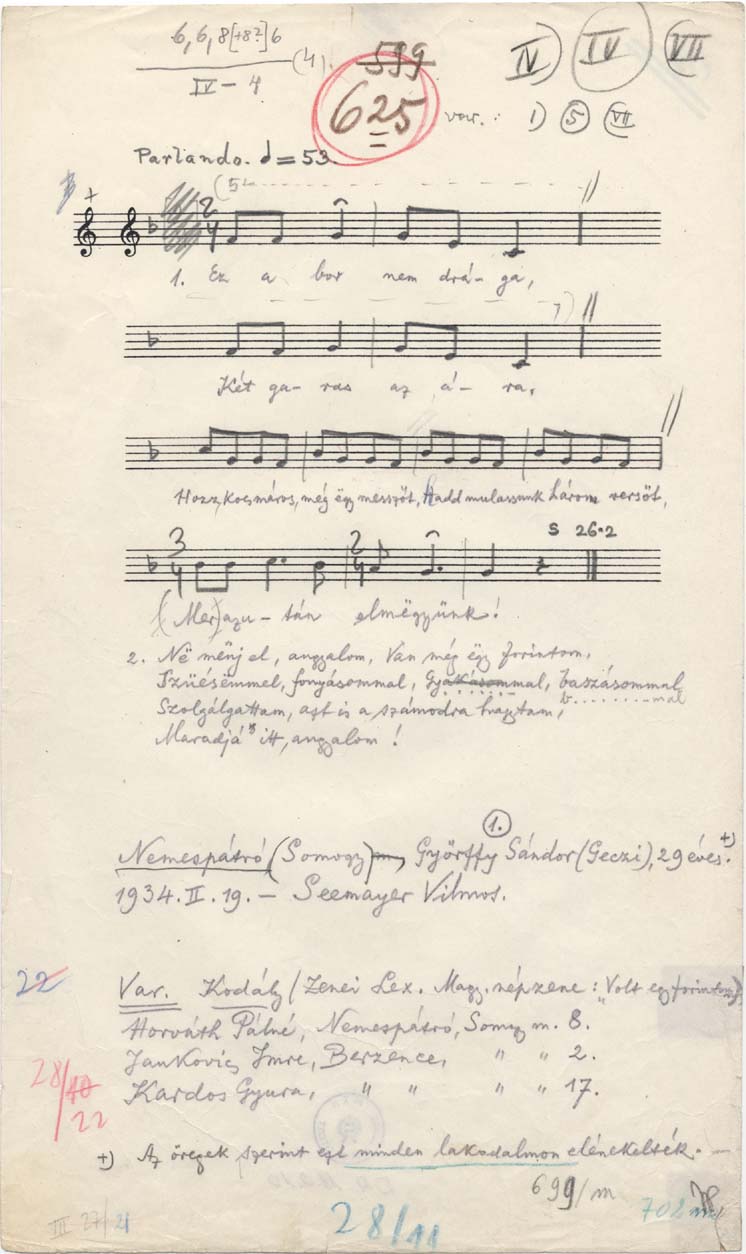 6, 6, 8[+8?] 6
IV – 4 (4).
599
625
IV) IV VII
var.: 1) 5 VII
Parlando. = 53
(5
2 4
1. Ez a bor nem drá- ga,
Két ga- ras az á- ra,
Hozz, kocsmáros, még ëgy messzöt, Hadd mulassunk három versöt,
3 4 2 4 S 26.2
(Mer) azu- tán elmëgyünk!
2. Në mënj el, angyalom, Van még ëgy forintom,
Szüésëmmel, fonyásommal, Gyakásommal, baszásommal
b.........mal
Szolgálgattam, azt is a számodra hagytam,
Maradjá' itt, angyalom!
1.
Nemespátró (Somogy) Györffy Sándor (Geczi), 29 éves. +)
1934. II. 19. – Seemayer Vilmos.
22
Var. Kodály (Zenei Lex. Magy. népzene: "Volt egy forintom)
Horváth Pálné, Nemespátró, Somogy m. 8.
Jankovics Imre, Berzence, " " 2.
Kardos Gyura, " " " " 17.
28/40
22
+) Az öregek szerint ezt minden lakodalmon elénekelték. —
699/m
702 m
III 27/21
28/11